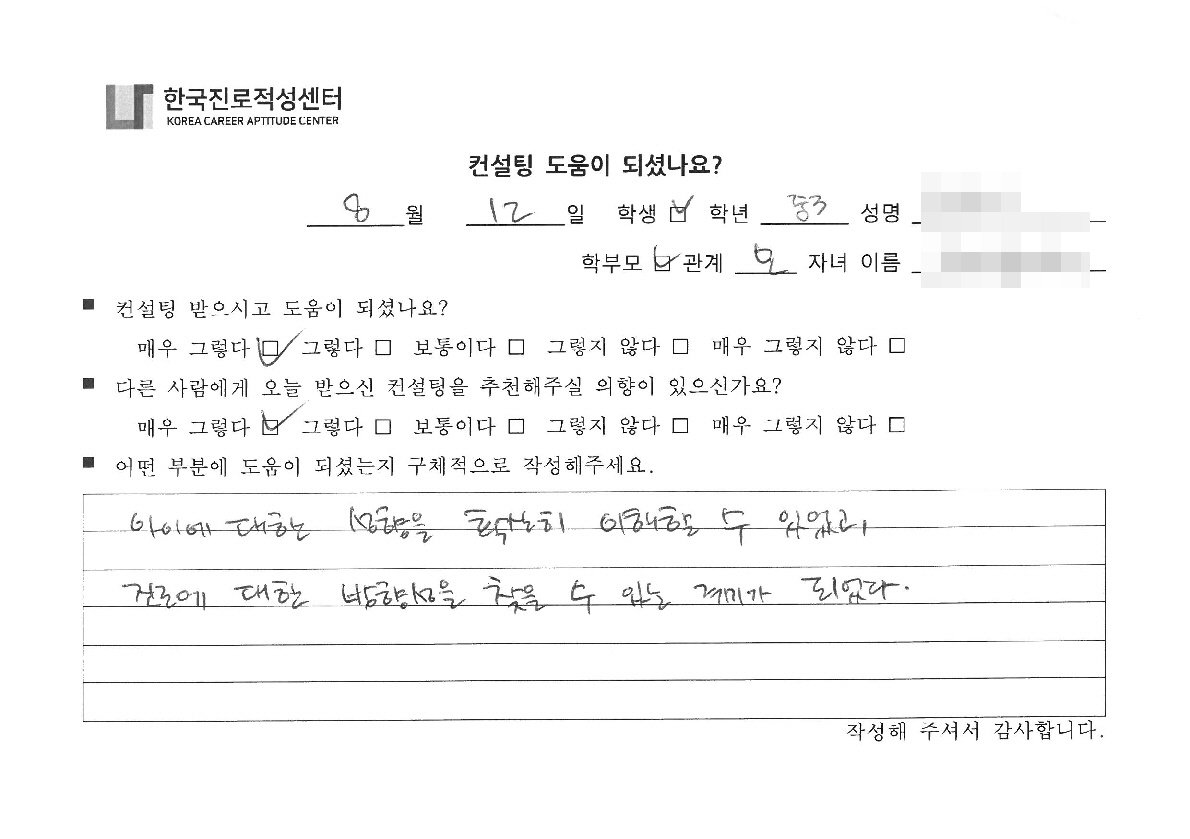 한국진로적성센터
KOREA CAREER APTITUDE CENTER
컨설팅 도움이 되셨나요?
8 월 12 일 학생 ☑ 학년 중3 성명
학부모 ☑ 관계 모 자녀 이름
■ 컨설팅 받으시고 도움이 되셨나요?
매우 그렇다 ☑ 그렇다 □ 보통이다 □ 그렇지 않다 □ 매우 그렇지 않다 □
■ 다른 사람에게 오늘 받으신 컨설팅을 추천해주실 의향이 있으신가요?
매우 그렇다 ☑ 그렇다 □ 보통이다 □ 그렇지 않다 □ 매우 그렇지 않다 □
■ 어떤 부분에 도움이 되셨는지 구체적으로 작성해주세요.
아이에 대한 성향을 확실히 이해할 수 있었고,
진로에 대한 방향성을 찾을 수 있는 계기가 되었다.
작성해 주셔서 감사합니다.